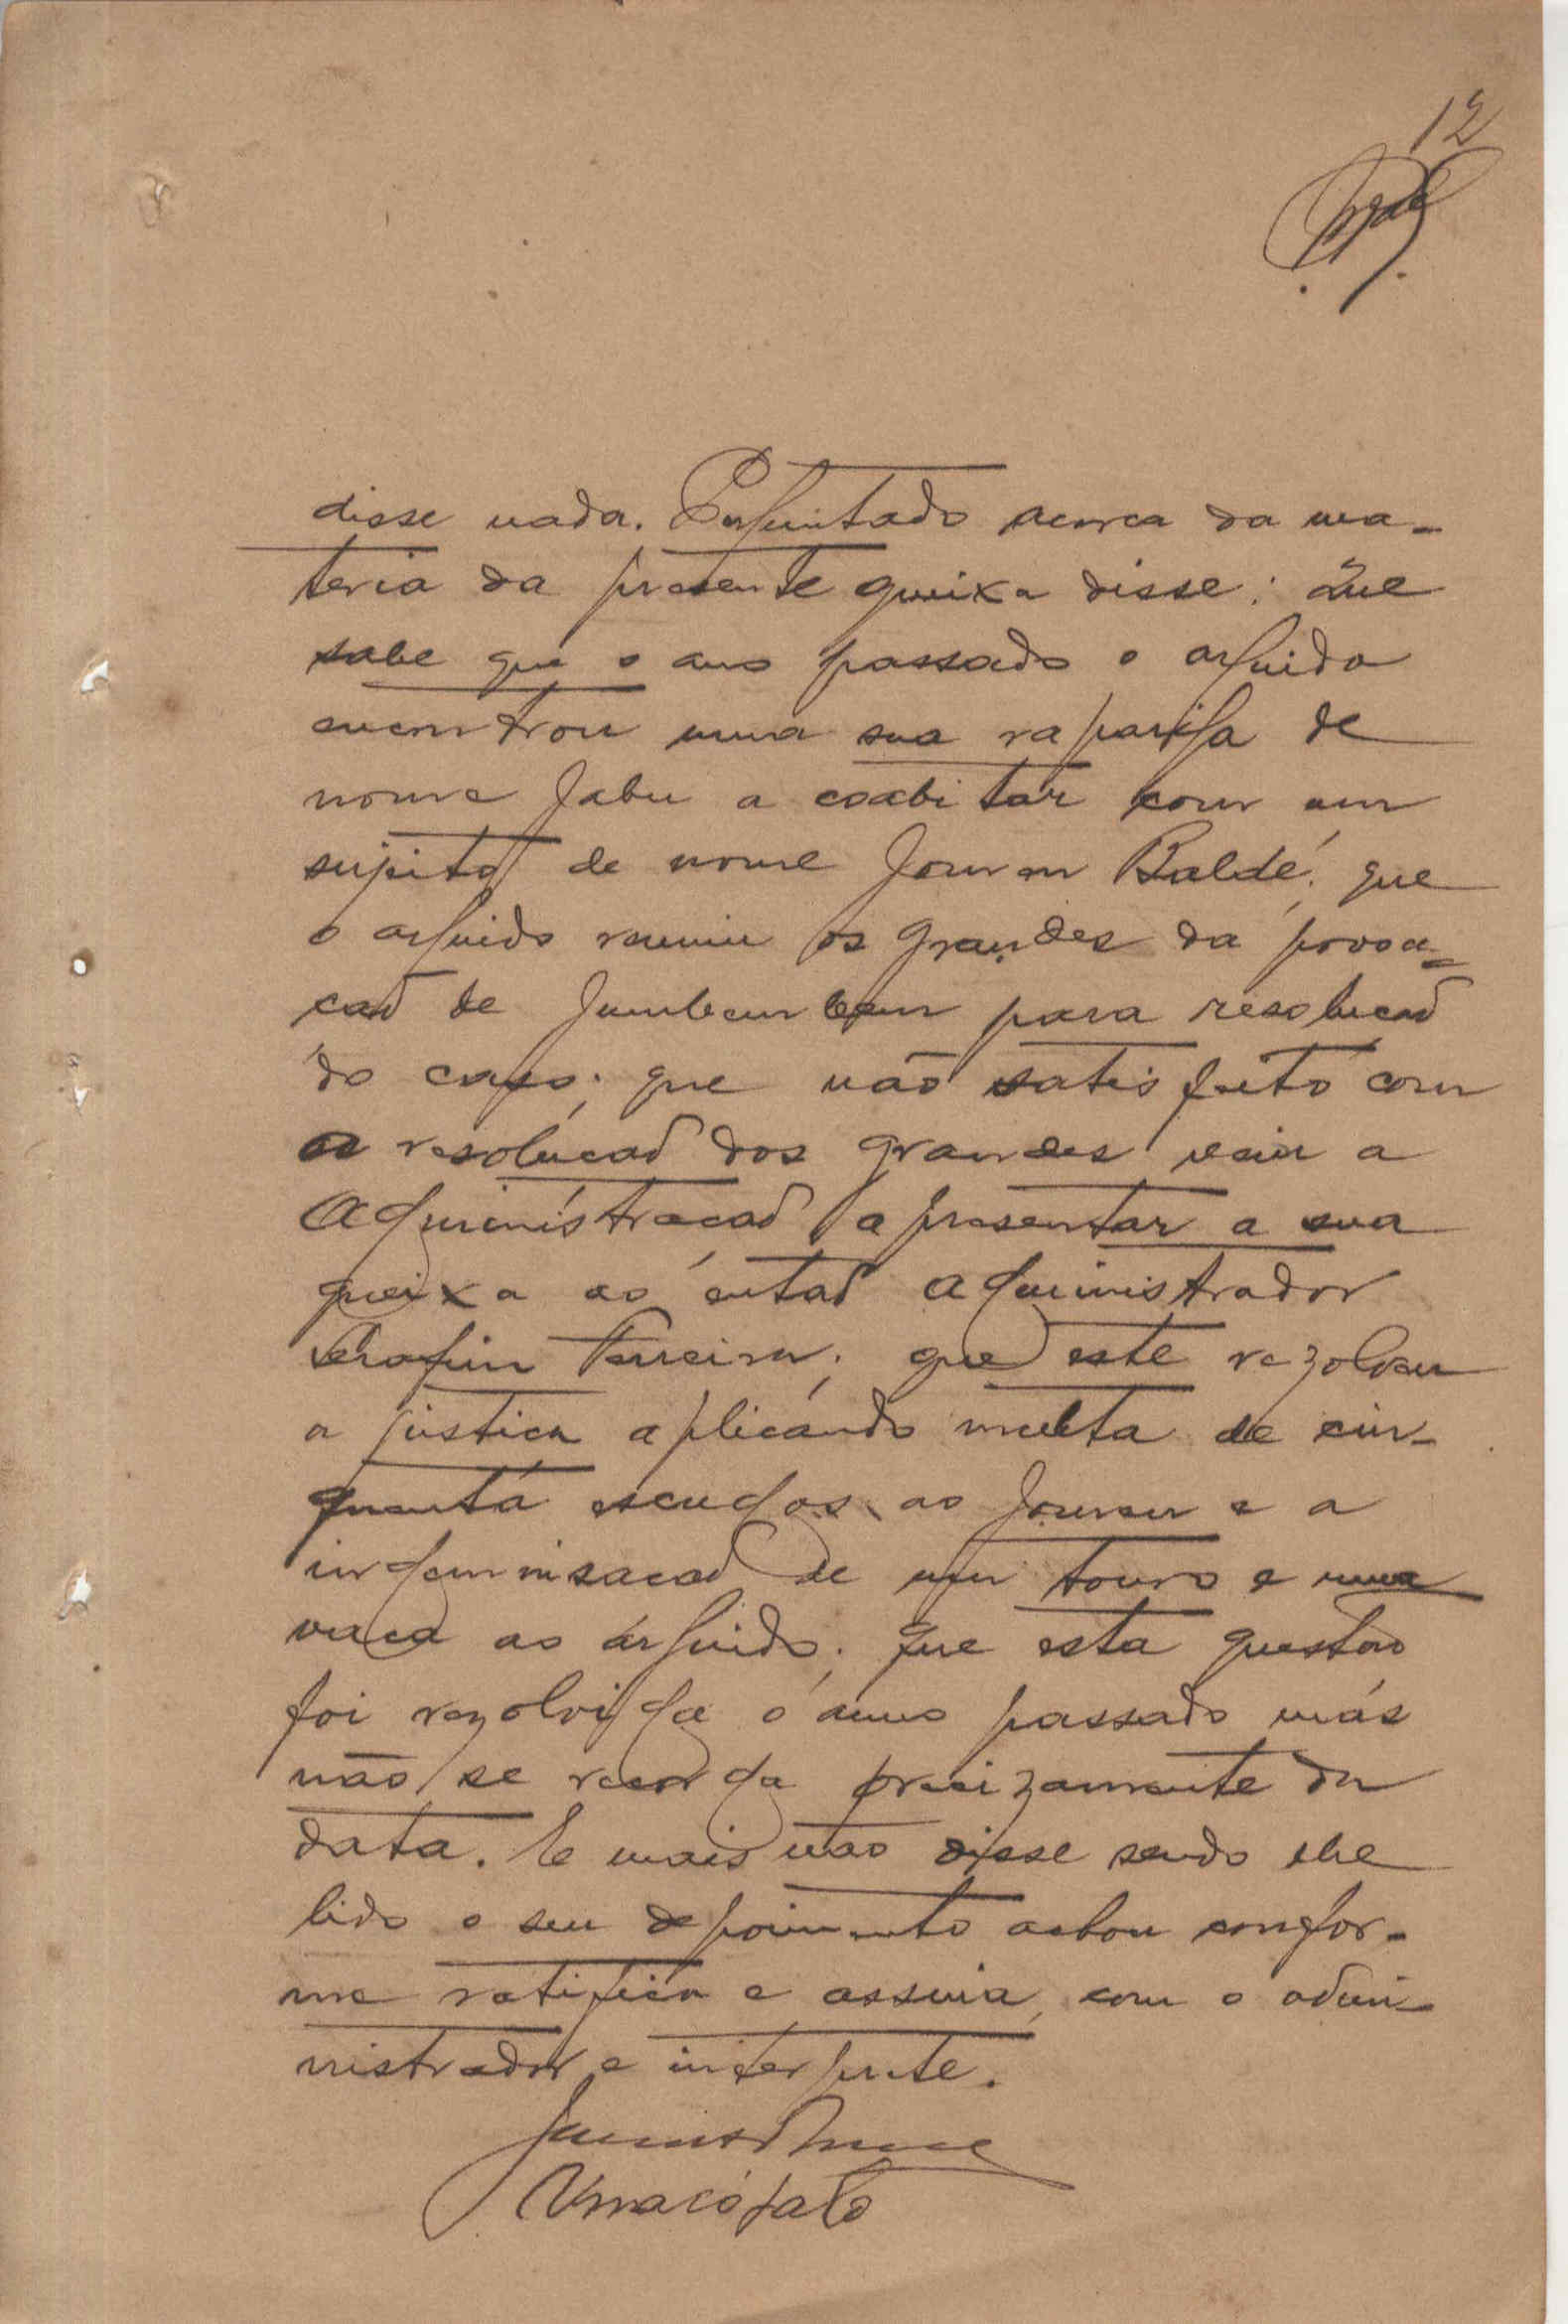 12
disse nada. Perguntado acerca da ma-
teria da presente queixa disse: Que
sabe que o ano passado o arguido
encontrou uma sua rapariga de
nome Jabu a coabitar com um
sujeito de nome Joman Baldé; que
o arguido reuniu os grandes da povoa-
cão de Jumbembem para resolucão
do caso; que não satisfeito com
a resolucão dos grandes veiu a
Administracão apresentar a sua
queixa ao então administrador
Serafim Ferreira; que este rezolveu
a justica aplicando multa de cin-
quenta escudos ao Joman e a
indemnisacão de um touro e uma
vaca ao arguido; que esta questão
foi rezolvida o anno passado más
não se recorda precizamente da
data. E mais não disse sendo lhe
lido o seu depoimento achou confor-
me ratifica e assina, com o admi-
nistrador e interprete.